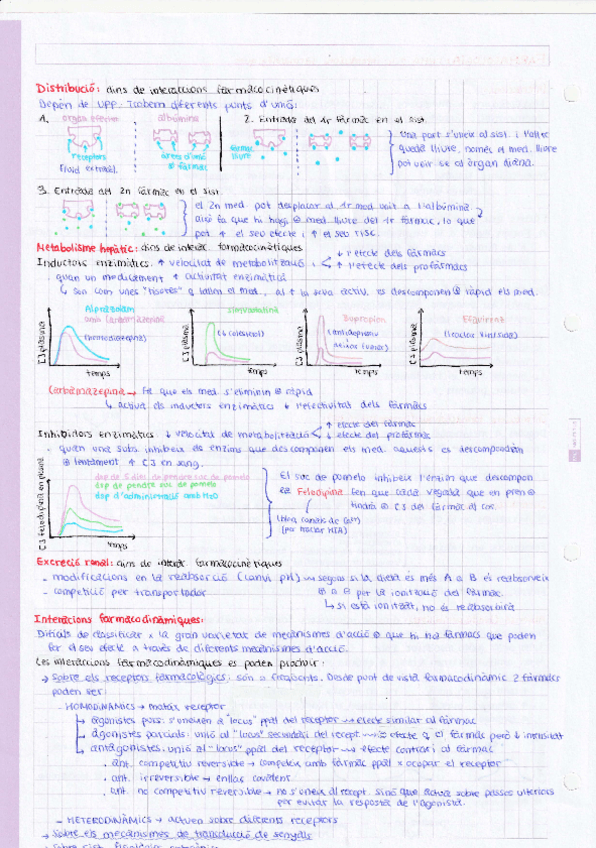 Distribució: dins de interaccions farmacocinètiques
Depèn de UPP. Trobem diferents punts d'unió:
1. òrgan efector albúmina
receptors
fluid extracel.
àrees d'unió
⊕ fàrmac
2. Entrada del 1r fàrmac en el sist.
fàrmac
lliure
Una part s'uneix al sist. i l'altre
queda lliure, només el med. lliure
pot unir-se al òrgan diana.
3. Entrada del 2n fàrmac en el sist.
el 2n med. pot desplaçar al 1r med unit a l'albúmina
això fa que hi hagi ⊕ med lliure del 1r fàrmac, lo que
pot ↑ el seu efecte i ↑ el seu risc.
Metabolisme hepàtic: dins de interac. farmacocinètiques
Inductors enzimàtics: ↑ velocitat de metabolització i
↓ l'efecte dels fàrmacs
↑ l'efecte dels profàrmacs
- quan un medicament ↑ activitat enzimàtica
↳ són com unes "tisores" q tallen el med., al ↑ la seva activ, es descomponen ⊕ ràpid els med.
Alprazolam
amb carbamazepina
(benzodiazepina)
[C] plasma
temps
simvastatina
(↓ colesterol)
[C] plasma
temps
Bupropion
(antidepressiu
[C] plasma
temps
Efavirenz
(tractar VIH/sida)
[C] plasma
temps
Carbamazepina → Fa que els med. s'eliminin ⊕ ràpid
↳ activa els inductors enzimàtics ↓ l'efectivitat dels fàrmacs
Inhibidors enzimàtics ↓ velocitat de metabolització
↑ efecte del fàrmac
↓ efecte del profàrmac
- quan una subs inhibeix els enzims que descomponen els med. aquests es descompondran
⊕ lentament ↑ [C] en sang.
[C] felodipina en plasma
dsp de 5 dies de prendre suc de pomelo
dsp de prendre suc de pomelo
dsp d'administració amb H₂O
temps
El suc de pomelo inhibeix l'enzim que descompon
la Felodipina fen que cada vegada que en pren ⊕
tindrà ⊕ [C] del fàrmac al cos.
(bloq canals de Ca²⁺)
(per tractar HTA)
Excreció renal: dins de interac farmacocinètiques
- modificacions en la reabsorció (canvi pH) → segons si la dieta és més A o B es reabsorveix
⊕ A o B per la ionització del fàrmac.
↳ si està ionitzat, no és reabsorbirà
- competició per transportador
Interacions farmacodinàmiques:
Difícils de classificar x la gran varietat de mecanismes d'acció ⊕ que hi ha fàrmacs que poden
fer el seu efecte a través de diferents mecanismes d'acció.
Les interaccions farmacodinàmiques es poden produir:
→ Sobre els receptors farmacològics: són ⊕ freqüents. Desde punt de vista farmacodinàmic 2 fàrmacs
poden ser:
- HOMODINÀMICS → mateix receptor
→ agonistes purs: s'uneixen a "locus" ppal del receptor → efecte similar al fàrmac
→ agonistes parcials: unió al "locus" secundari del recept. → efecte q el fàrmac però ↓ intensitat
→ antagonistes: unió al "locus" ppal del receptor → efecte contrari al fàrmac
. ant. competitiu reversible → competeix amb fàrmac ppal x ocupar el receptor
. ant. irreversible → enllaç covalent
. ant. no competitiu reversible → no s'uneix al recept. sinó que actua sobre passos ulteriors
per evitar la resposta de l'agonista.
- HETERODINÀMICS → actuen sobre diferents receptors
→ Sobre els mecanismes de transducció de senyals